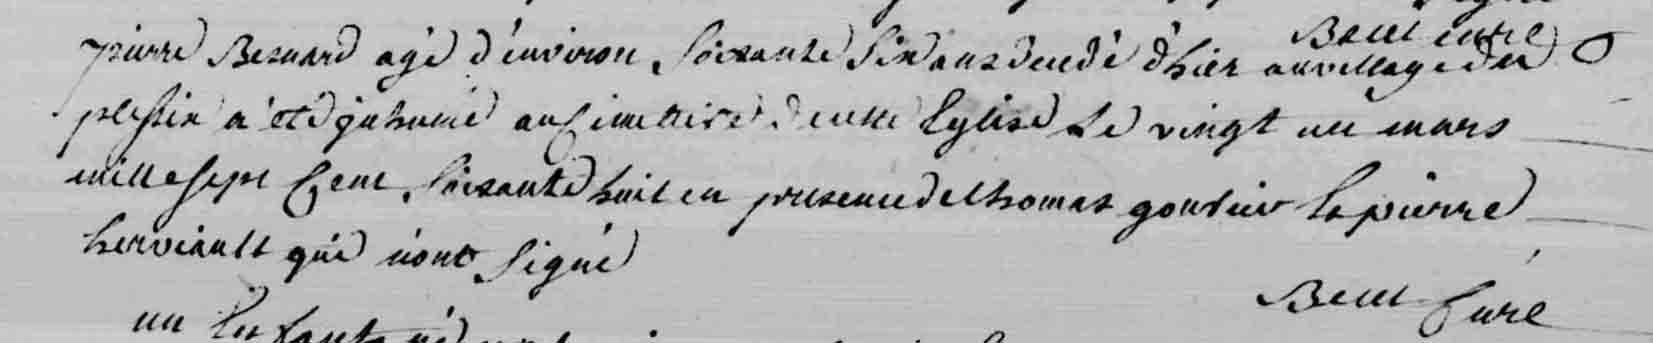 Beul curé
pierre Besnard agé d'environ soixante six ans decedé d'hier au village du
plessix a été inhumé au cimettire de cette Eglise le vingt un mars
mille sept Cent soixante huit en presence de thomas gontier & pierre
herviault qui n'ont signé
Beul Curé
un Enfant né